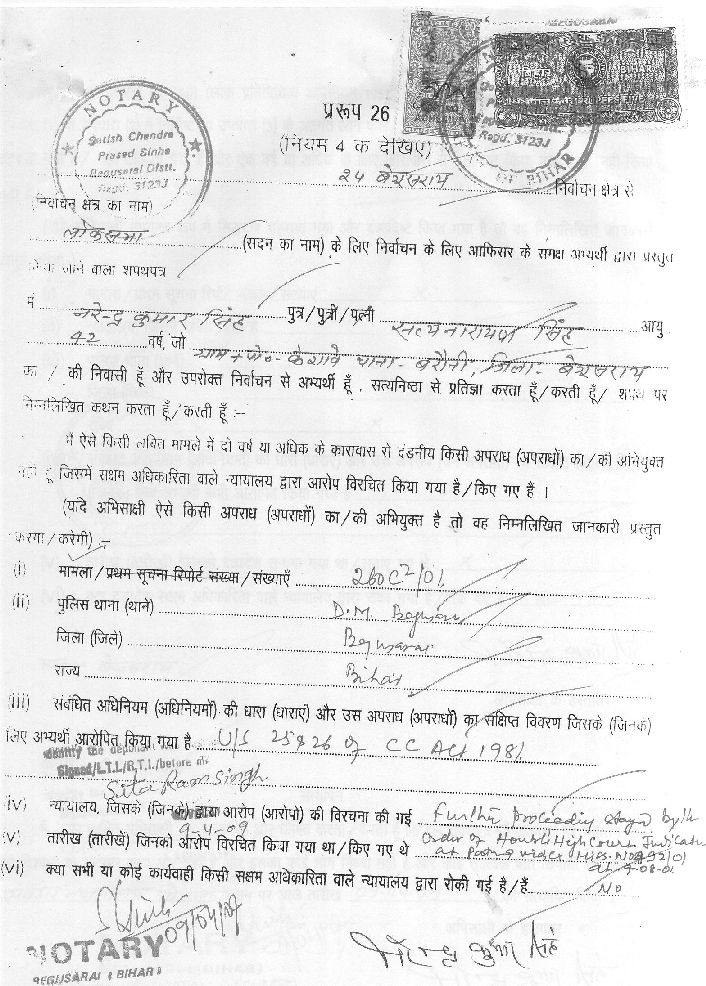 BEGUSARAI
NOTARY
Satish Chandra
Prasad Sinha
Begusarai Distt.
Regd. 3123J
प्ररूप 26
(नियम 4 क देखिए)
Regd. 3123J
OF BIHAR
24 बेगुसराय निर्वाचन क्षेत्र से
(निर्वाचन क्षेत्र का नाम)
लोकसभा (सदन का नाम) के लिए निर्वाचन के लिए आफिसर के समक्ष अभ्यर्थी द्वारा प्रस्तुत
किया जाने वाला शपथपत्र
मैं नरेन्द्र कुमार सिंह पुत्र/पुत्री/पत्नी सत्यनारायण सिंह आयु
42 वर्ष, जो ग्राम+पो०-केशावे थाना-बरौनी, जिला-बेगुसराय
का / की निवासी हूँ और उपरोक्त निर्वाचन से अभ्यर्थी हूँ , सत्यनिष्ठा से प्रतिज्ञा करता हूँ/करती हूँ/ शपथ पर
निम्नलिखित कथन करता हूँ/करती हूँ :-
मैं ऐसे किसी लंबित मामले में दो वर्ष या अधिक के कारावास से दंडनीय किसी अपराध (अपराधों) का/की अभियुक्त
नहीं हूँ जिसमें सक्षम अधिकारिता वाले न्यायालय द्वारा आरोप विरचित किया गया है/किए गए हैं ।
(यदि अभिसाक्षी ऐसे किसी अपराध (अपराधों) का/की अभियुक्त है तो वह निम्नलिखित जानकारी प्रस्तुत
करेगा/करेगी) :-
(i) मामला/प्रथम सूचना रिपोर्ट संख्या/संख्याएँ 260C2/01
(ii) पुलिस थाना (थाने) D.M. Begusarai
जिला (जिले) Begusarai
राज्य Bihar
(iii) संबंधित अधिनियम (अधिनियमों) की धारा (धाराएं) और उस अपराध (अपराधों) का संक्षिप्त विवरण जिसके (जिनके)
लिए अभ्यर्थी आरोपित किया गया है U/S 25&26 of CC Act 1981
Identify the deponent
Signed/L.T.I./R.T.I./before me
Sita Ram Singh
iv) न्यायालय, जिसके (जिनके) द्वारा आरोप (आरोपों) की विरचना की गई Further proceeding stayed by the
9-4-09
(v) तारीख (तारीखें) जिनको आरोप विरचित किया गया था/किए गए थे order of Hon'ble High Court Judicature
at Patna vide
(vi) क्या सभी या कोई कार्यवाही किसी सक्षम अधिकारिता वाले न्यायालय द्वारा रोकी गई है/हैं. NO
09/04/09
नरेन्द्र कुमार सिंह
NOTARY
BEGUSARAI (BIHAR)